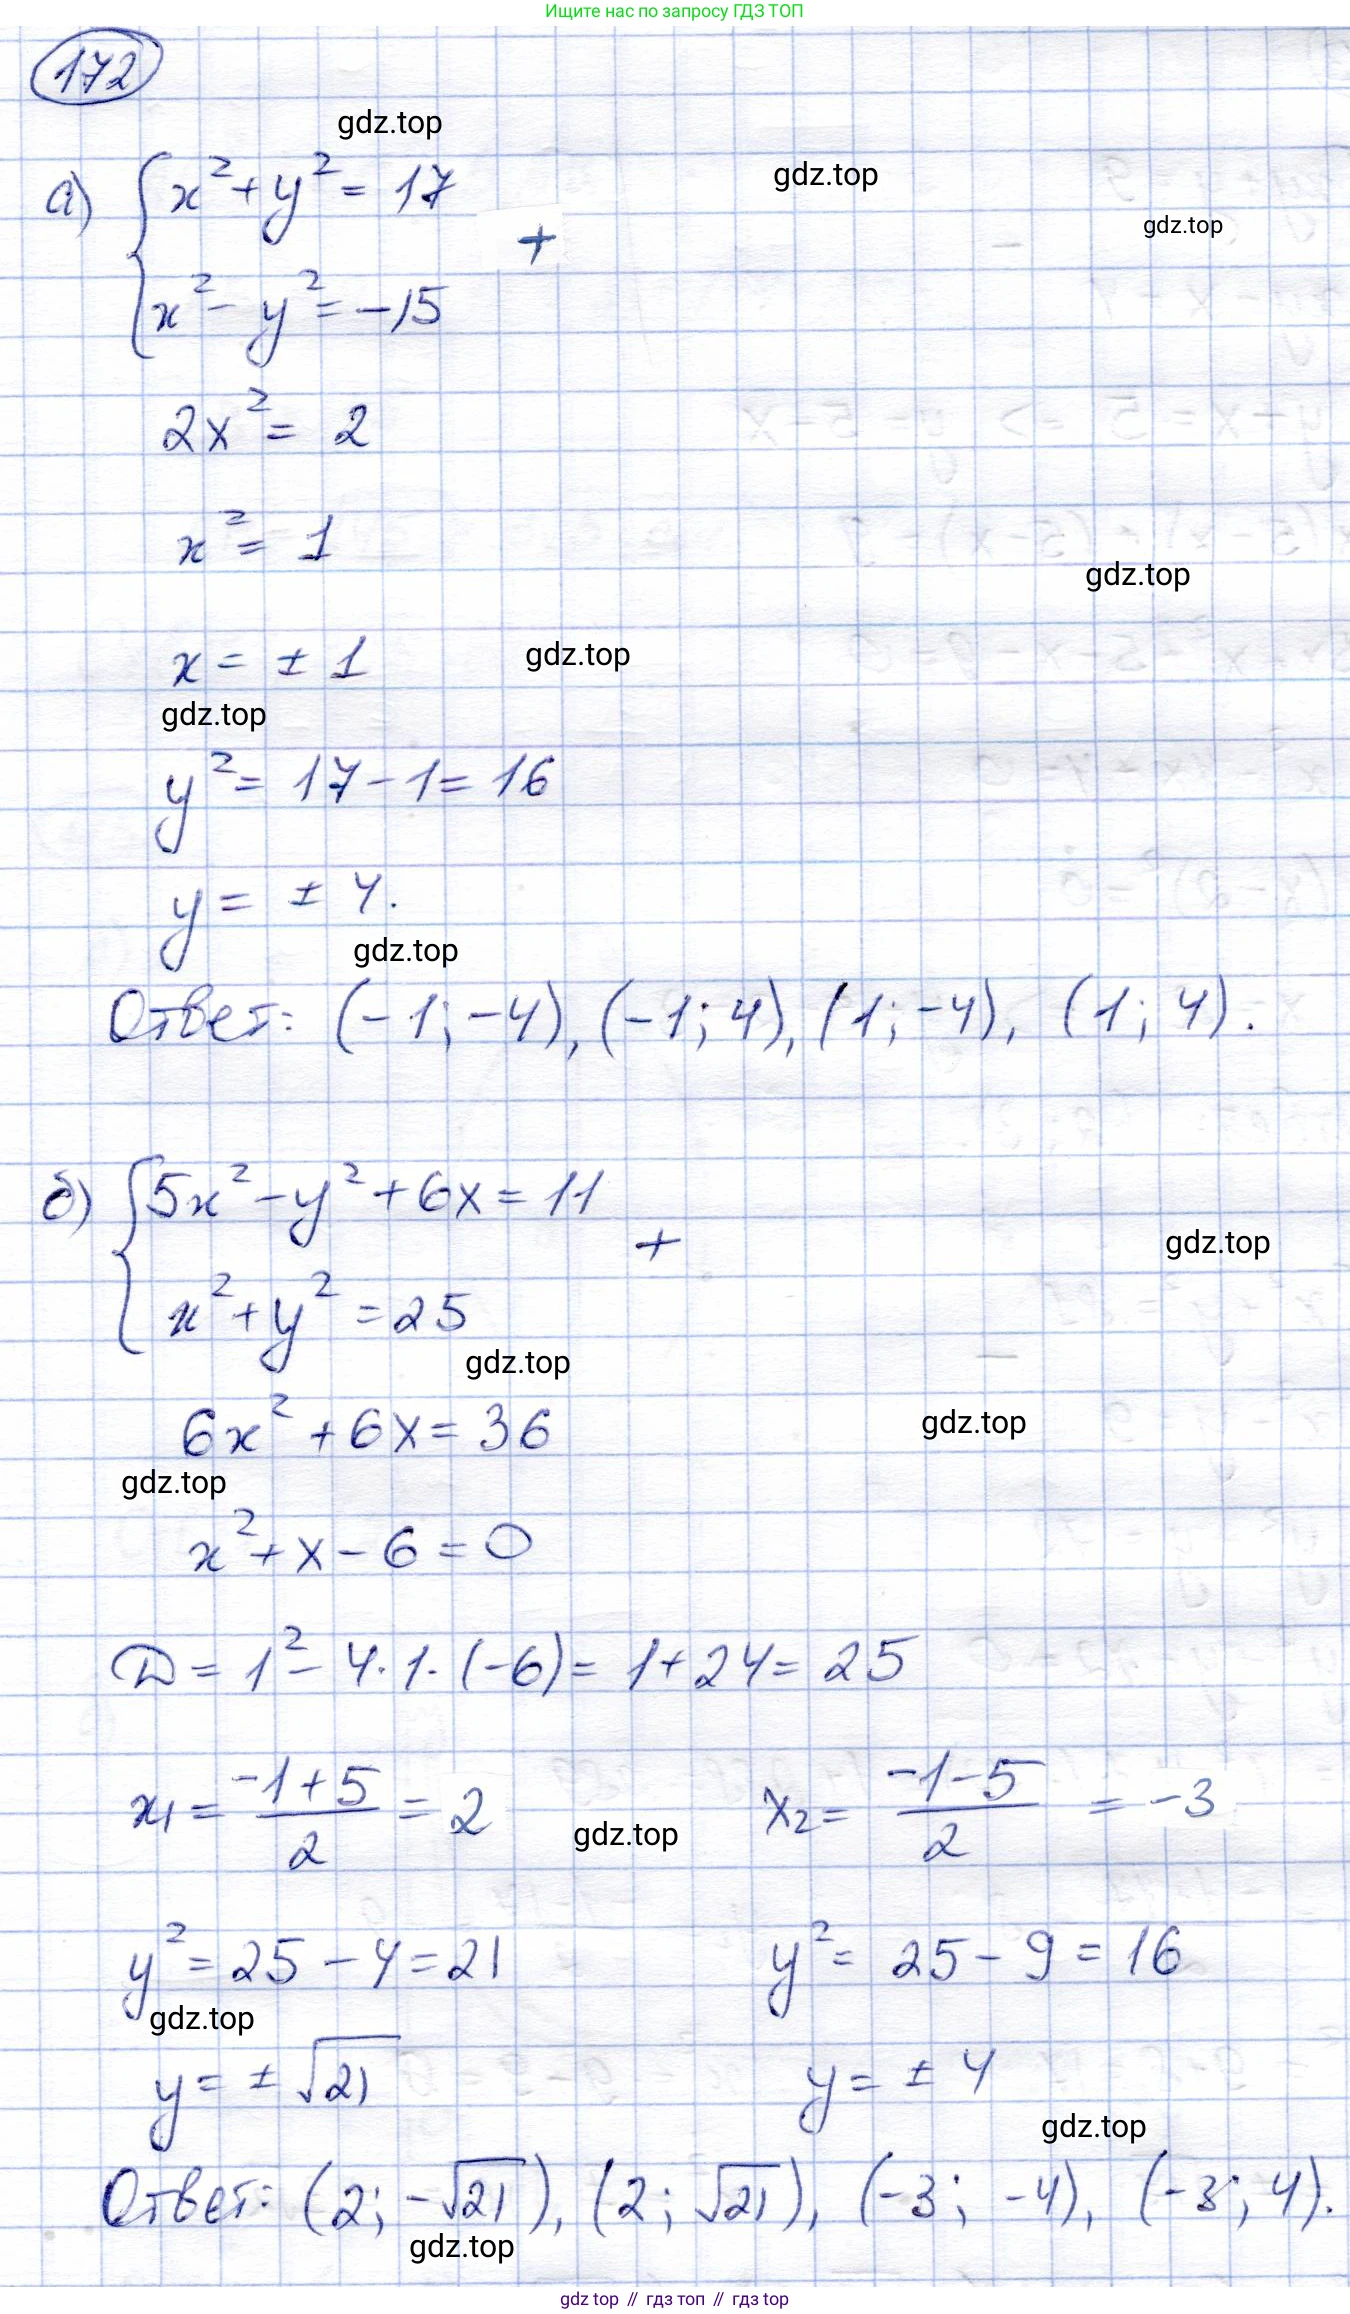 Ищите нас по запросу ГДЗ ТОП
172
gdz.top
а) { x² + y² = 17
gdz.top
gdz.top
+
x² - y² = -15
2x² = 2
x² = 1
gdz.top
x = ± 1
gdz.top
gdz.top
y² = 17 - 1 = 16
y = ± 4.
gdz.top
Ответ: (-1; -4), (-1; 4), (1; -4), (1; 4).
б) { 5x² - y² + 6x = 11
+
gdz.top
x² + y² = 25
gdz.top
6x² + 6x = 36
gdz.top
gdz.top
x² + x - 6 = 0
D = 1² - 4·1·(-6) = 1 + 24 = 25
x₁ = (-1+5)/2 = 2
gdz.top
x₂ = (-1-5)/2 = -3
y² = 25 - 4 = 21
y² = 25 - 9 = 16
gdz.top
y = ± √21
y = ± 4
gdz.top
Ответ: (2; -√21), (2; √21), (-3; -4), (-3; 4).
gdz.top
gdz top // гдз топ // гдз top